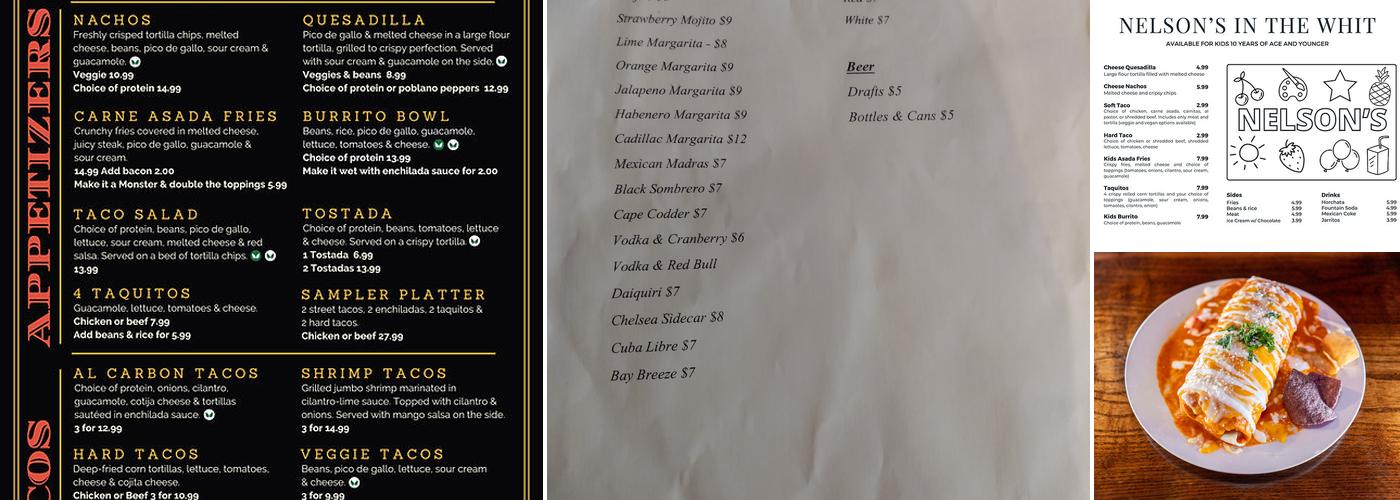 APPETIZERS
NACHOS
Freshly crisped tortilla chips, melted
cheese, beans, pico de gallo, sour cream &
guacamole.
Veggie 10.99
Choice of protein 14.99
CARNE ASADA FRIES
Crunchy fries covered in melted cheese,
juicy steak, pico de gallo, guacamole &
sour cream.
14.99 Add bacon 2.00
Make it a Monster & double the toppings 5.99
TACO SALAD
Choice of protein, beans, pico de gallo,
lettuce, sour cream, melted cheese & red
salsa. Served on a bed of tortilla chips.
13.99
4 TAQUITOS
Guacamole, lettuce, tomatoes & cheese.
Chicken or beef 7.99
Add beans & rice for 5.99
QUESADILLA
Pico de gallo & melted cheese in a large flour
tortilla, grilled to crispy perfection. Served
with sour cream & guacamole on the side.
Veggies & beans 8.99
Choice of protein or poblano peppers 12.99
BURRITO BOWL
Beans, rice, pico de gallo, guacamole,
lettuce, tomatoes & cheese.
Choice of protein 13.99
Make it wet with enchilada sauce for 2.00
TOSTADA
Choice of protein, beans, tomatoes, lettuce
& cheese. Served on a crispy tortilla.
1 Tostada 6.99
2 Tostadas 13.99
SAMPLER PLATTER
2 street tacos, 2 enchiladas, 2 taquitos &
2 hard tacos.
Chicken or beef 27.99
COS
AL CARBON TACOS
Choice of protein, onions, cilantro,
guacamole, cotija cheese & tortillas
sautéed in enchilada sauce.
3 for 12.99
HARD TACOS
Deep-fried corn tortillas, lettuce, tomatoes,
cheese & cojita cheese.
Chicken or Beef 3 for 10.99
SHRIMP TACOS
Grilled jumbo shrimp marinated in
cilantro-lime sauce. Topped with cilantro &
onions. Served with mango salsa on the side.
3 for 14.99
VEGGIE TACOS
Beans, pico de gallo, lettuce, sour cream
& cheese.
3 for 9.99
Strawberry Mojito $9
Lime Margarita - $8
Orange Margarita $9
Jalapeno Margarita $9
Habenero Margarita $9
Cadillac Margarita $12
Mexican Madras $7
Black Sombrero $7
Cape Codder $7
Vodka & Cranberry $6
Vodka & Red Bull
Daiquiri $7
Chelsea Sidecar $8
Cuba Libre $7
Bay Breeze $7
White $7
Beer
Drafts $5
Bottles & Cans $5
NELSON'S IN THE WHIT
AVAILABLE FOR KIDS 10 YEARS OF AGE AND YOUNGER
Cheese Quesadilla 4.99
Large flour tortilla filled with melted cheese
Cheese Nachos 5.99
Melted cheese and cripsy chips
Soft Taco 2.99
Choice of chicken, carne asada, carnitas, al
pastor, or shredded beef. Includes only meat and
tortilla (veggie and vegan options available)
Hard Taco 2.99
Choice of chicken or shredded beef, shredded
lettuce, tomatoes, cheese
Kids Asada Fries 7.99
Crispy fries, melted cheese and choice of
toppings (tomatoes, onions, cilantro, sour cream,
guacamole)
Taquitos 7.99
4 crispy rolled corn tortillas and your choice of
toppings (guacamole, sour cream, onions,
tomaotes, cilantro, onion)
Kids Burrito 7.99
Choice of protein, beans, guacamole
NELSON'S
Sides
Fries 4.99
Beans & rice 5.99
Meat 4.99
Ice Cream w/ Chocolate 3.99
Drinks
Horchata 5.99
Fountain Soda 4.99
Mexican Coke 5.99
Jarritos 3.99